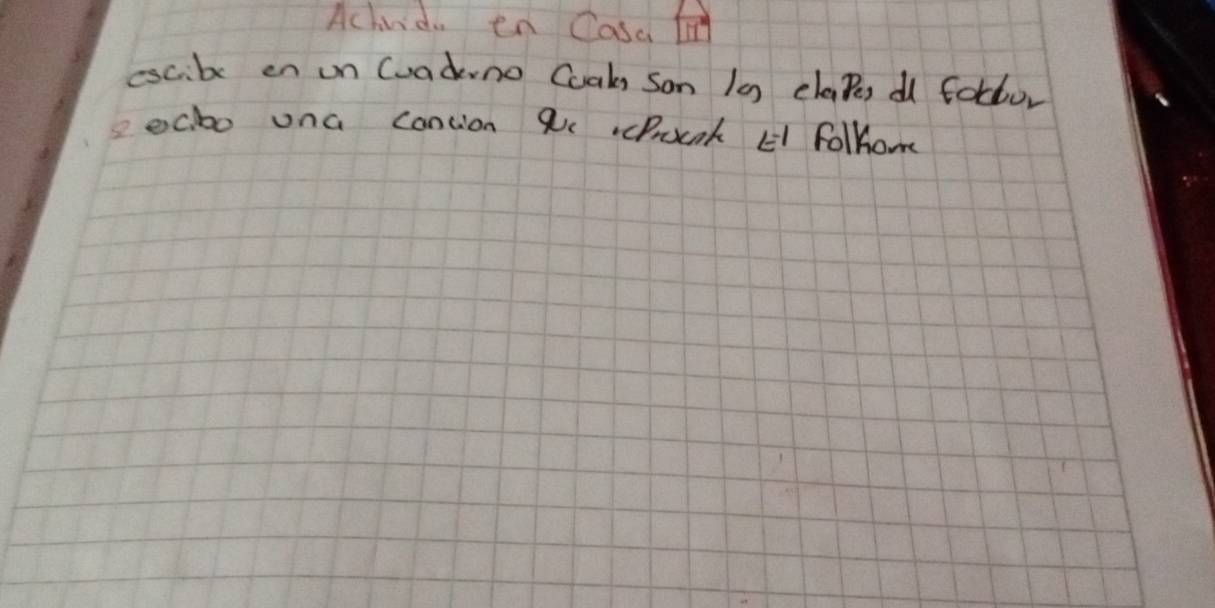 Actividu en Casa
escibe en un Cuaderno Cuales son las clapes del
2 escibo una cancion que represente El Folkore